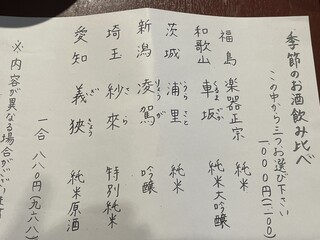 季節のお酒飲み比べ
この中から三つお選び下さい
一〇〇〇円(一一〇〇)
福島 楽器正宗 純米
和歌山 車坂 くるまざか 純米大吟醸
茨城 浦里 うらさと 純米
新潟 凌駕 りょうが 吟醸
埼玉 紗來 さら 特別純米
愛知 義侠 ぎきょう 純米原酒
一合 八八〇円(九六八)
※内容が異なる場合がございます